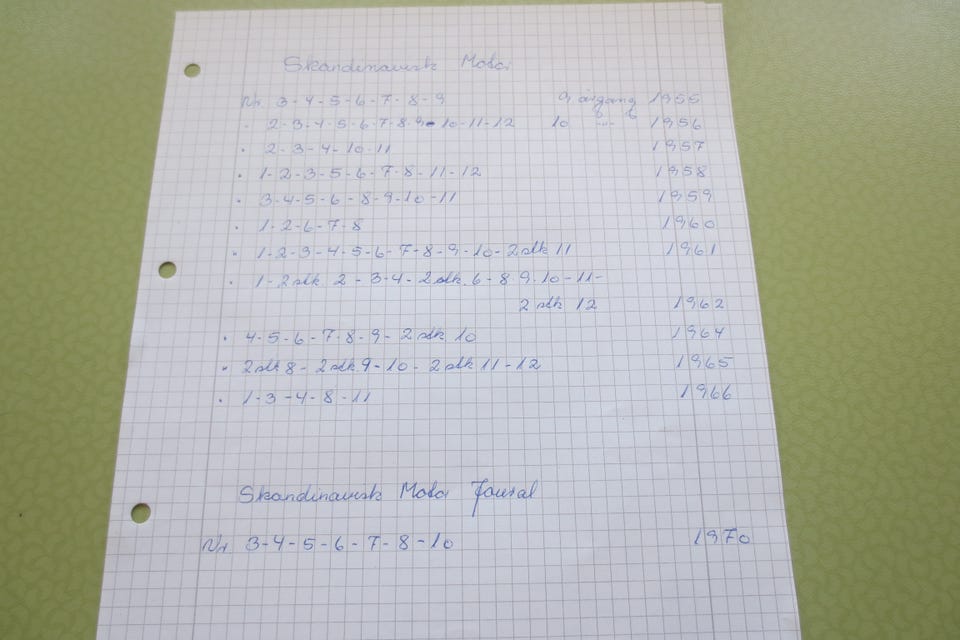 Skandinavisk Motor
Nr. 3-4-5-6-7-8-9 9 årgang 1955
" 2-3-4-5-6-7-8-9-10-11-12 10 -"- 1956
" 2-3-4-10-11 1957
" 1-2-3-5-6-7-8-11-12 1958
" 3-4-5-6-8-9-10-11 1959
" 1-2-6-7-8 1960
" 1-2-3-4-5-6-7-8-9-10-2stk 11 1961
" 1-2stk 2-3-4-2stk.6-8 9-10-11-
2 stk 12 1962
" 4-5-6-7-8-9-2stk 10 1964
" 2stk8-2stk9-10-2stk11-12 1965
" 1-3-4-8-11 1966
Skandinavisk Motor Journal
Nr 3-4-5-6-7-8-10 1970